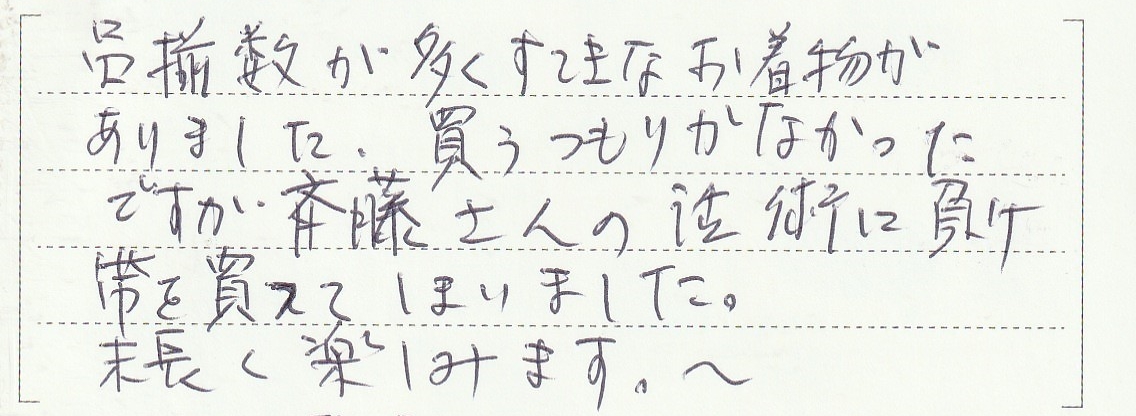 品揃数が多くすてきなお着物が
ありました. 買うつもりがなかった
ですが斉藤さんの話術に負け
帯を買えてしまいました。
末長く楽しみます。~